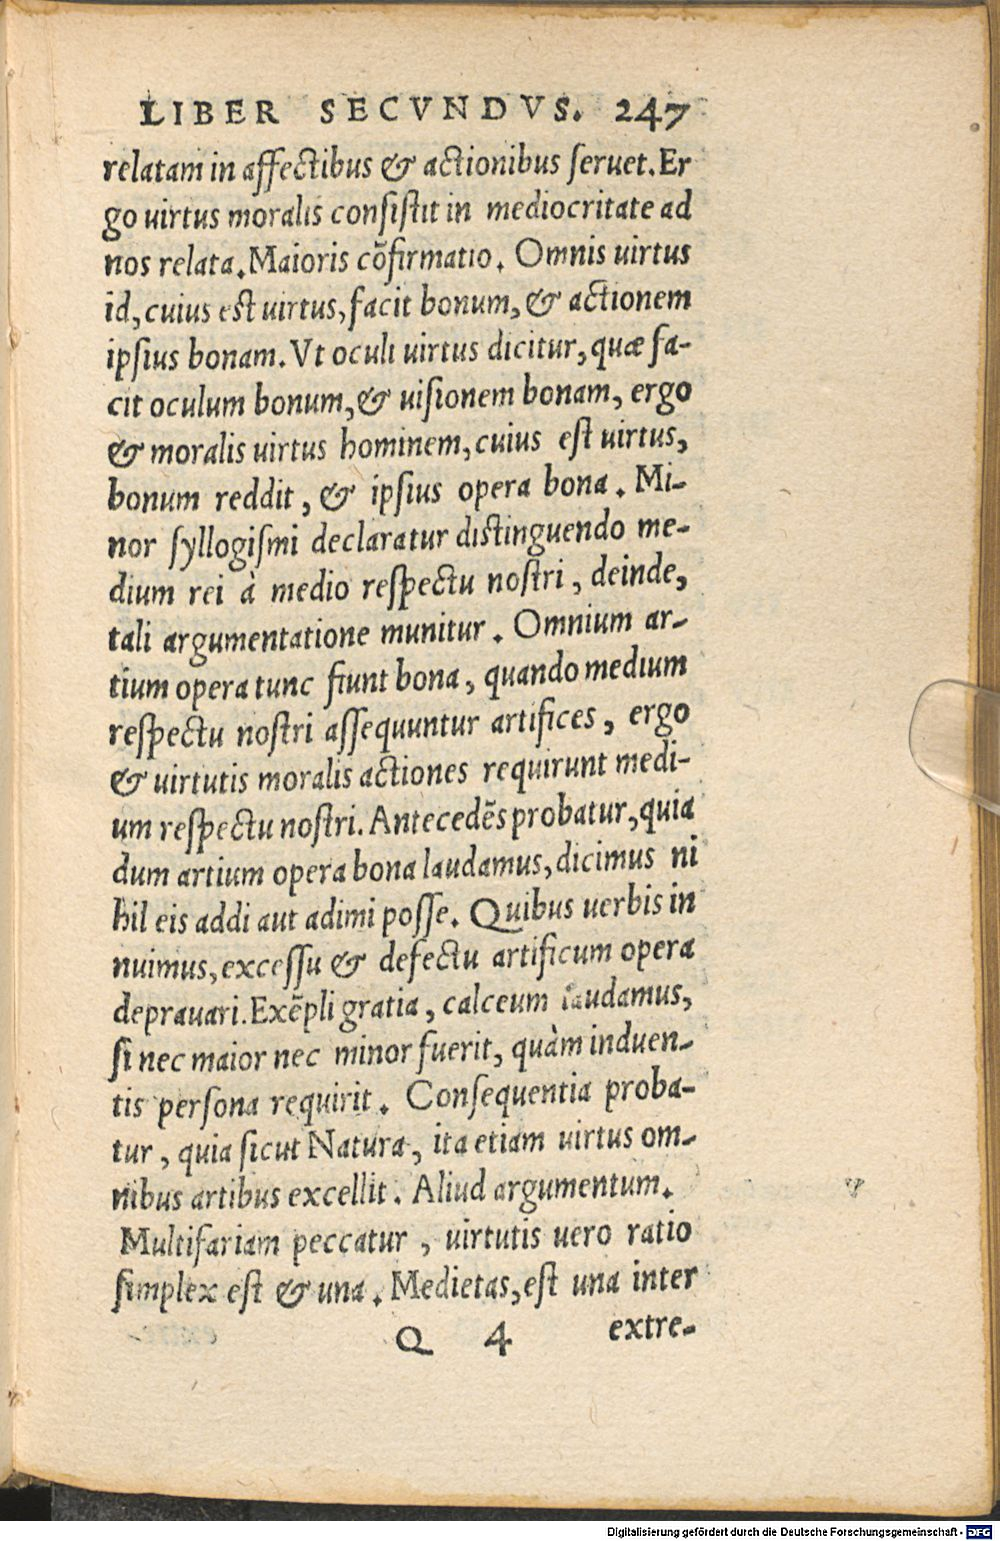 LIBER SECVNDVS. 247
relatam in affectibus & actionibus seruet. Er
go uirtus moralis consistit in mediocritate ad
nos relata. Maioris cõfirmatio. Omnis uirtus
id, cuius est uirtus, facit bonum, & actionem
ipsius bonam. Vt oculi uirtus dicitur, quæ fa-
cit oculum bonum, & uisionem bonam, ergo
& moralis uirtus hominem, cuius est uirtus,
bonum reddit, & ipsius opera bona. Mi-
nor syllogismi declaratur distinguendo me-
dium rei à medio respectu nostri, deinde,
tali argumentatione munitur. Omnium ar-
tium opera tunc fiunt bona, quando medium
respectu nostri assequuntur artifices, ergo
& uirtutis moralis actiones requirunt medi-
um respectu nostri. Antecedẽs probatur, quia
dum artium opera bona laudamus, dicimus ni
hil eis addi aut adimi posse. Quibus uerbis in
nuimus, excessu & defectu artificum opera
deprauari. Exẽpli gratia, calceum laudamus,
si nec maior nec minor fuerit, quàm induen-
tis persona requirit. Consequentia proba-
tur, quia sicut Natura, ita etiam uirtus om-
nibus artibus excellit. Aliud argumentum.
Multifariam peccatur, uirtutis uero ratio
simplex est & una. Medietas, est una inter
Q 4 extre-
Digitalisierung gefördert durch die Deutsche Forschungsgemeinschaft - DFG